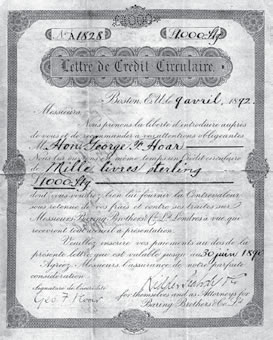 No. A 1828 £1000 Stg
Lettre de Crédit Circulaire.
Boston, E.U. le 9 avril, 1892.
Messieurs
Nous prenons la liberté d'introduire auprès
de vous et de recommander à vos attentions obligeantes
M Hon. George F. Hoar
de Mille livres sterling
£1000 Stg
dont vous voudrez bien lui fournir la Contrevaleur
sous retenue de vos frais et contre ses traites sur
Messieurs Baring Brothers & Co. Ld. Londres à vue qui
recevront toujours accueil à présentation.
Veuillez inscrire vos paiements au dos de la
présente lettre qui est valable jusqu'au 30 juin 189
Agréez Messieurs l'assurance de notre parfaite
considération.
Signature de l'accrédité
Geo F Hoar
for themselves and as Attorneys for
Baring Brothers & Co. Ld.